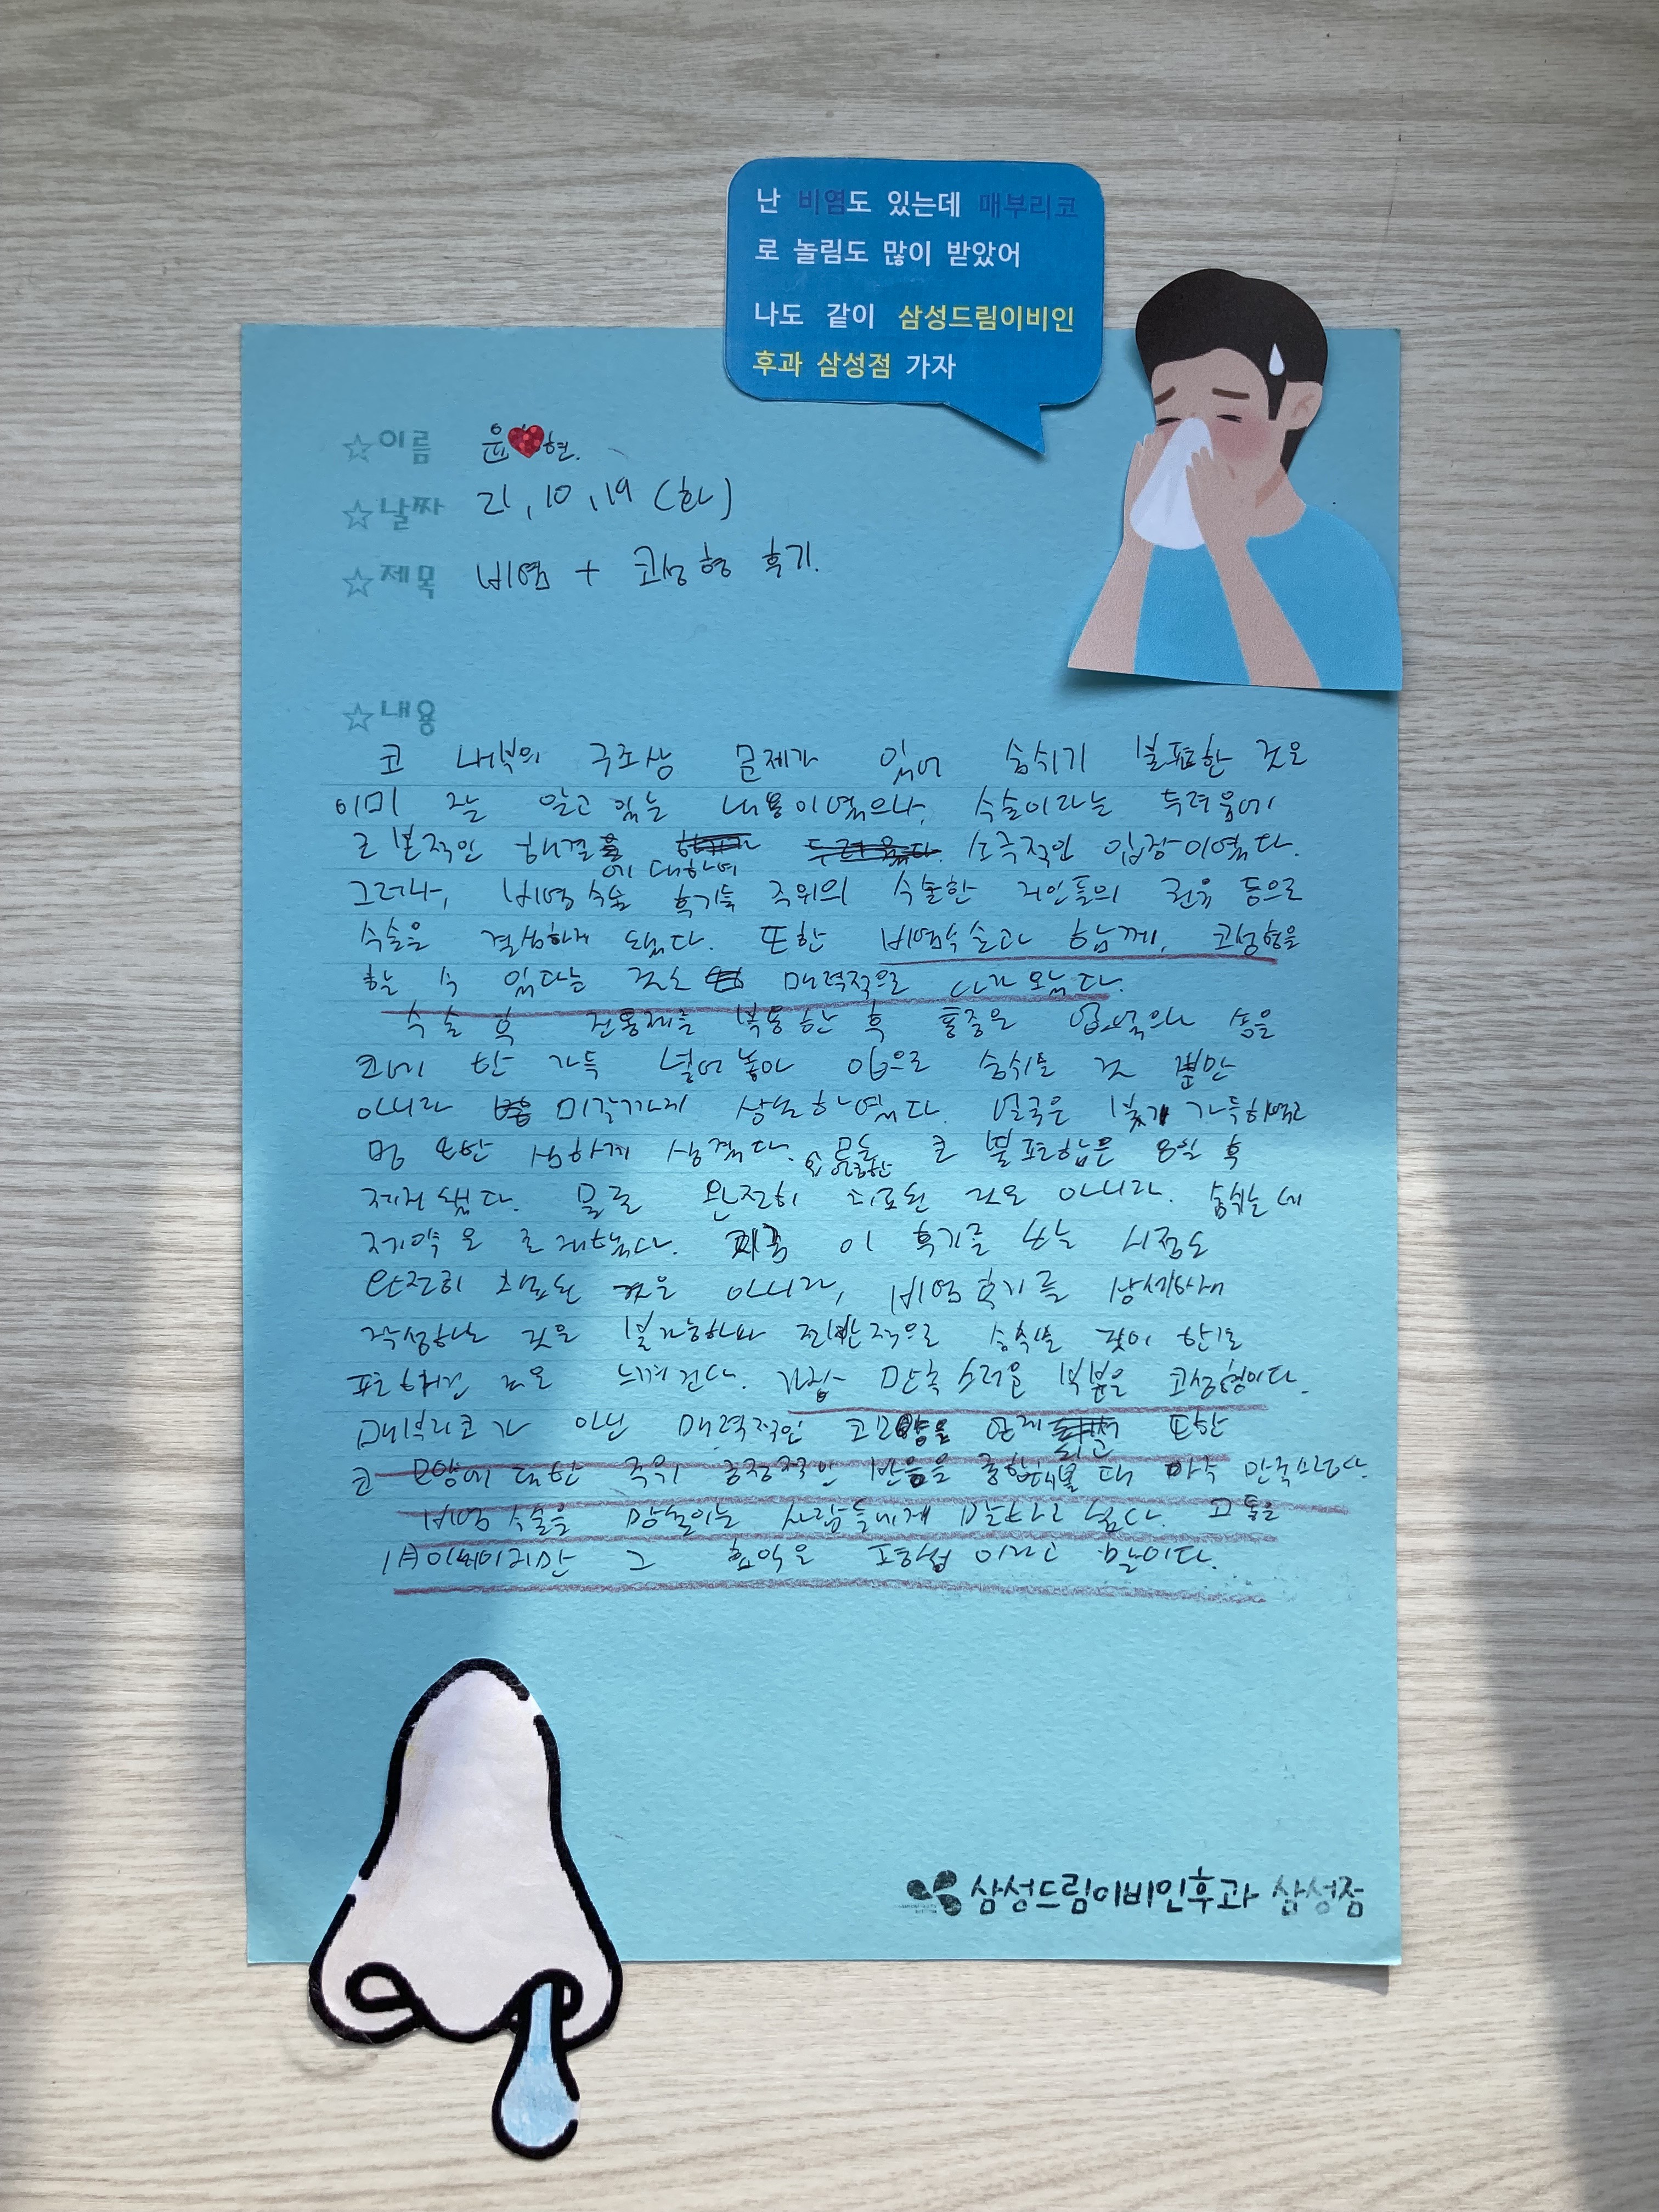 난 비염도 있는데 매부리코
로 놀림도 많이 받았어
나도 같이 삼성드림이비인
후과 삼성점 가자
☆이름 윤❤현.
☆날짜 21, 10, 19 (화)
☆제목 비염 + 코성형 후기.
☆내용
코 내부의 구조상 문제가 있어 숨쉬기 불편한 것은
이미 잘 알고 있는 내용이였으나, 수술이라는 두려움에
근본적인 해결에 대하여 소극적인 입장이였다.
그러나, 비염 수술 후기들 주위의 수술한 지인들의 권유 등으로
수술을 결심하게 됐다. 또한 비염수술과 함께, 코성형을
할 수 있다는 것은 매력적으로 다가왔다.
수술 후 진통제를 복용한 후 통증은 없었으나 솜을
코에 한 가득 넣어놓아 입으로 숨쉬는 것 뿐만
아니라 미각까지 상실하였다. 얼굴은 붓기 가득하였고
멍 또한 심하게 생겼다. 큰 불편함은 8일 후
제거됐다. 물론 완전히 치료된 것은 아니라. 숨쉬는데
제약은 존재했다. 이 후기를 쓰는 시점도
완전히 치료된 것은 아니라, 비염후기를 상세하게
작성하는 것은 불가능하나 전반적으로 숨쉬는 것이 한층
편해진 것은 느껴진다. 가장 만족스러운 부분은 코성형이다.
매부리코가 아닌 매력적인 코모양을 얻게 되고 또한
코 모양에 대한 주위 긍정적인 반응을 종합해볼 때 아주 만족스럽다.
비염 수술을 망설이는 사람들에게 말하고 싶다. 고통을
1주이면이지만 그 효과는 평생이라고 말이다.
삼성드림이비인후과 삼성점